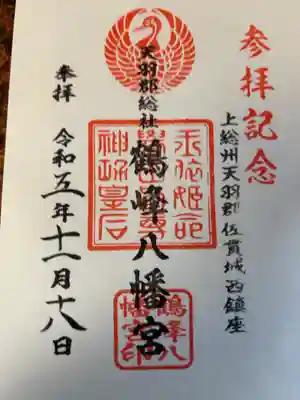 参拝記念
上総州天羽郡佐貫城西鎮座
天羽郡総社
鶴峰八幡宮
奉拝
令和五年十一月十八日
玉依姫命
神功皇后
鶴峯八
幡宮印